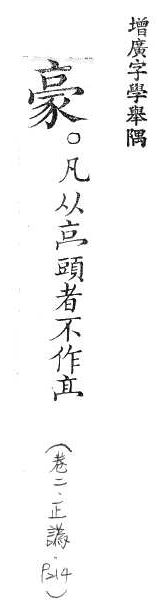 增廣字學舉隅
豪。凡从亯頭者不作亠
(卷二、正譌、P214)